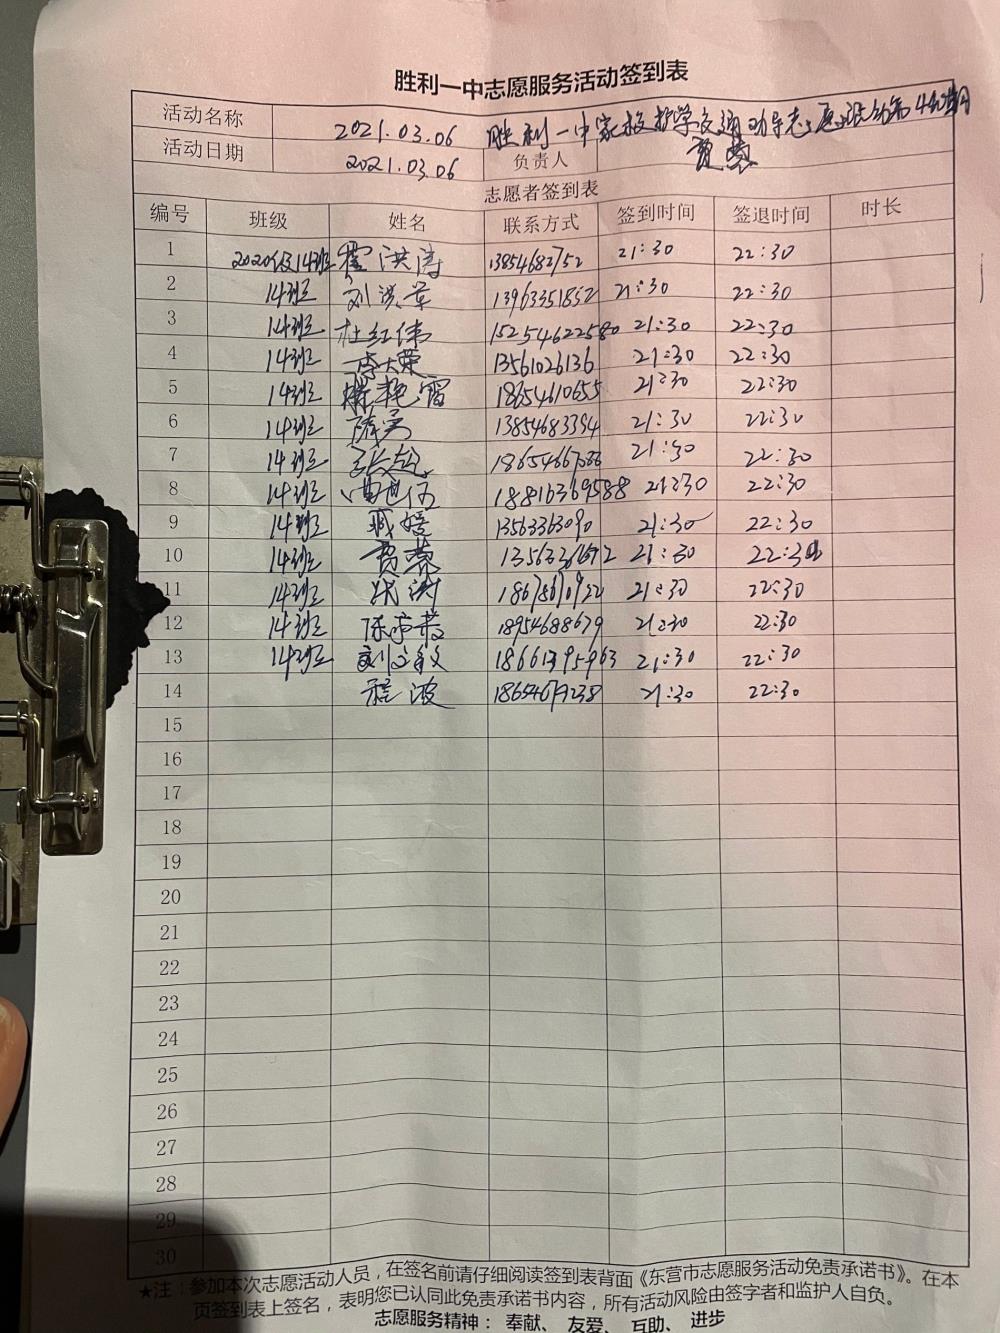 胜利一中志愿服务活动签到表
活动名称 2021.03.06 胜利一中家校
活动日期 2021.03.06 负责人 贾荣
志愿者签到表
编号 班级 姓名 联系方式 签到时间 签退时间 时长
1 2020级14班 洪涛 13854682752 21:30 22:30
2 14班 刘洪军 13963351852 21:30 22:30
3 14班 杜红伟 15254622580 21:30 22:30
4 14班 李大荣 13561026136 21:30 22:30
5 14班 18654610655 21:30 22:30
6 14班 13854683394 21:30 22:30
7 14班 21:30 22:30
8 14班 18816369588 21:30 22:30
9 14班 13563363090 21:30 22:30
10 14班 贾荣 21:30 22:30
11 14班 21:30 22:30
12 14班 18954688679 21:30 22:30
13 14班 21:30 22:30
14 程波 21:30 22:30
15
16
17
18
19
20
21
22
23
24
25
26
27
28
29
30
★注：参加本次志愿活动人员，在签名前请仔细阅读签到表背面《东营市志愿服务活动免责承诺书》。在本
页签到表上签名，表明您已认同此免责承诺书内容，所有活动风险由签字者和监护人自负。
志愿服务精神： 奉献、 友爱、 互助、 进步